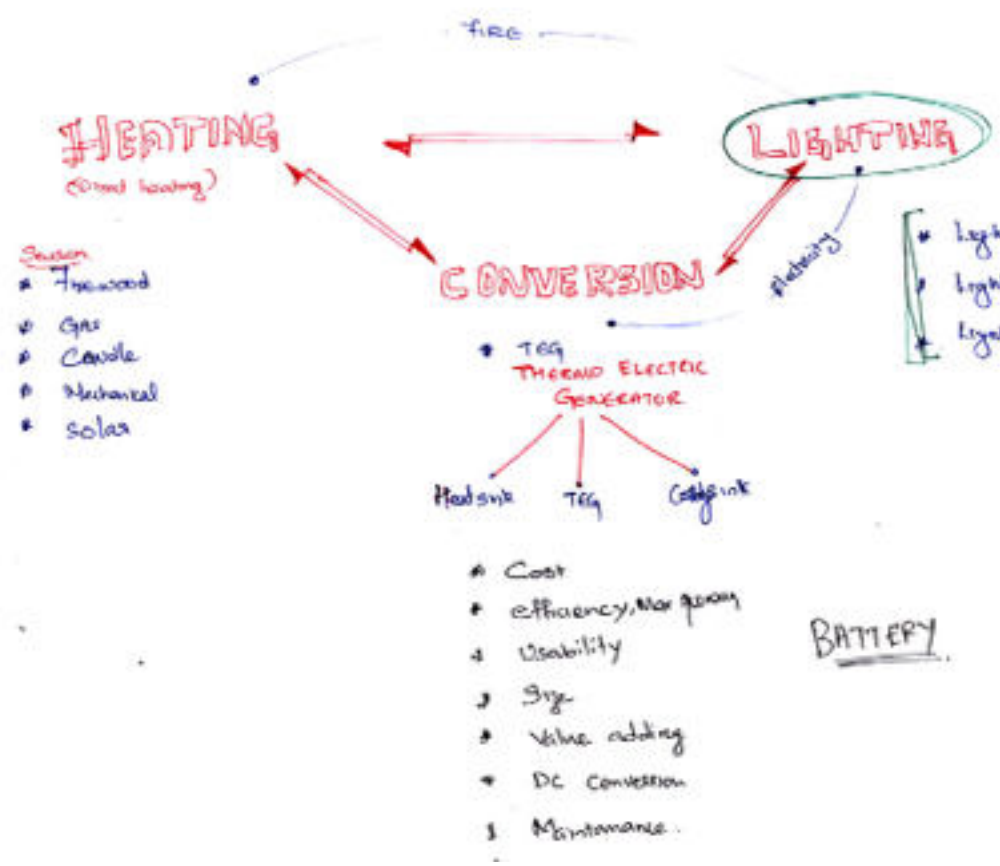 FIRE
HEATING
LIGHTING
(Direct heating)
CONVERSION
Electricity
Firewood
Gas
Candle
Mechanical
Solar
Ligh
Ligh
Ligh
TEG
THERMO ELECTRIC
GENERATOR
Heatsink TEG
Cost
efficiency, Max
Usability
Size
Value adding
DC Conversion
Maintanance.
BATTERY